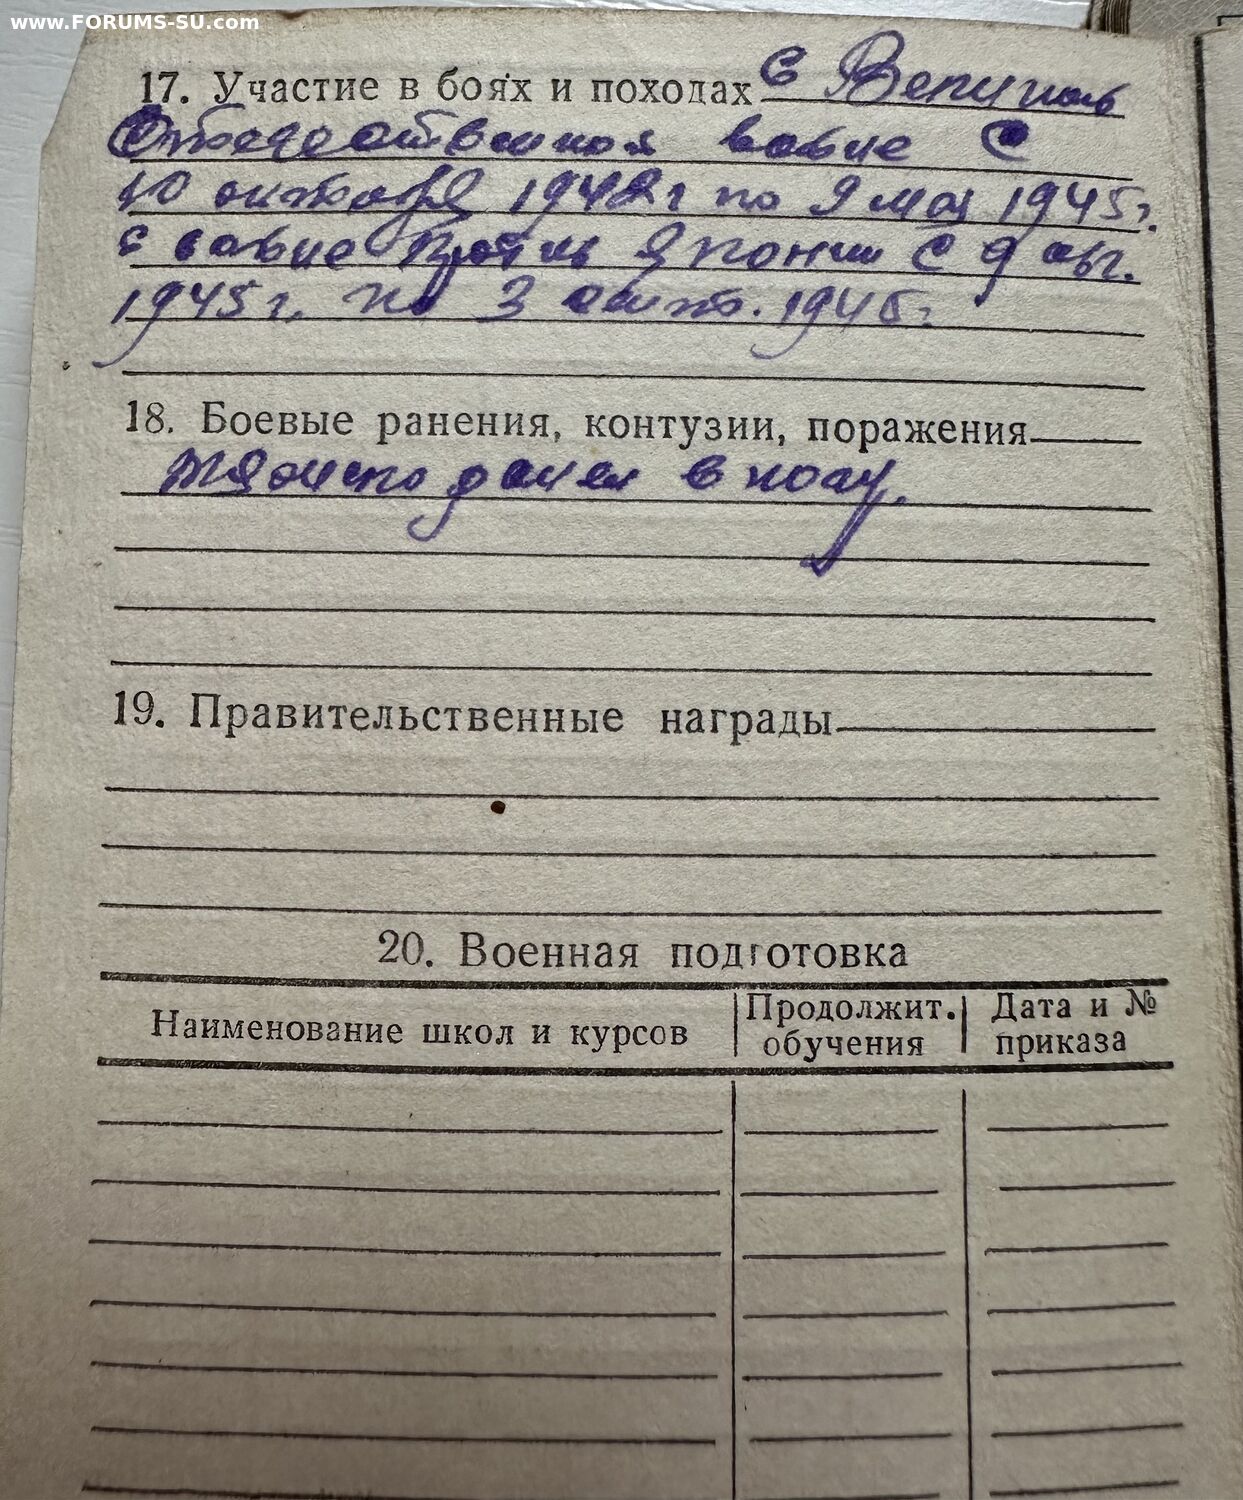 www.FORUMS-SU.com
17. Участие в боях и походах В Великой
Отечественной войне с
10 октября 1942 г по 9 мая 1945 г.
в войне против Японии с 9 авг.
1945 г. по 3 сент. 1945 г.
18. Боевые ранения, контузии, поражения
тяжело ранен в ногу.
19. Правительственные награды
20. Военная подготовка
Наименование школ и курсов
Продолжит. обучения
Дата и № приказа